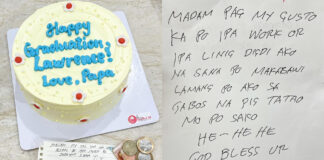 Happy
Graduation,
Lawrence!
Love, Papa
MADAM PAG MY GUSTO
KA PO IPA WORK OR
IPA LINIG DIDI AKO
NA SANA PO MAKABAWI
LAMANG PO AKO SA
GABOS NA PIG TATAO
MO PO SAKO
HE-HE HE
GOD BLESS UR